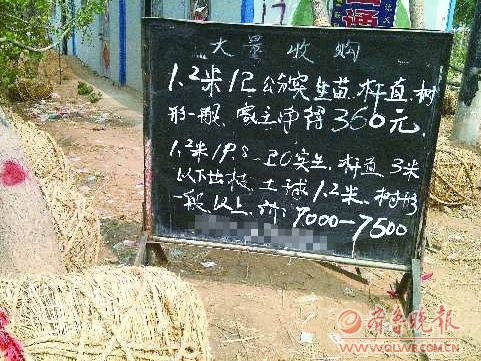 大量收购
1.2米12公分实生苗.杆直.树
形一般、家主净得360元.
1.2米19.8-20实生.杆直3米
以下出枝.土球1.2米.树形
一般以上.价7000-7500
通
齐鲁晚报
WWW.QLWB.COM.CN